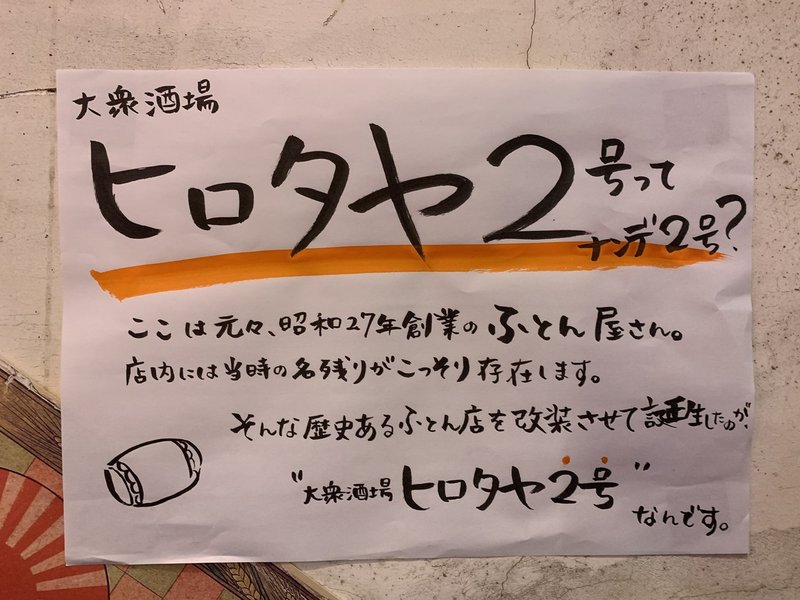 大衆酒場
ヒロタヤ2号って
ナンデ2号?
ここは元々、昭和27年創業のふとん屋さん。
店内には当時の名残りがこっそり存在します。
そんな歴史あるふとん店を改装させて誕生したのが、
"大衆酒場ヒロタヤ2号"
なんです。